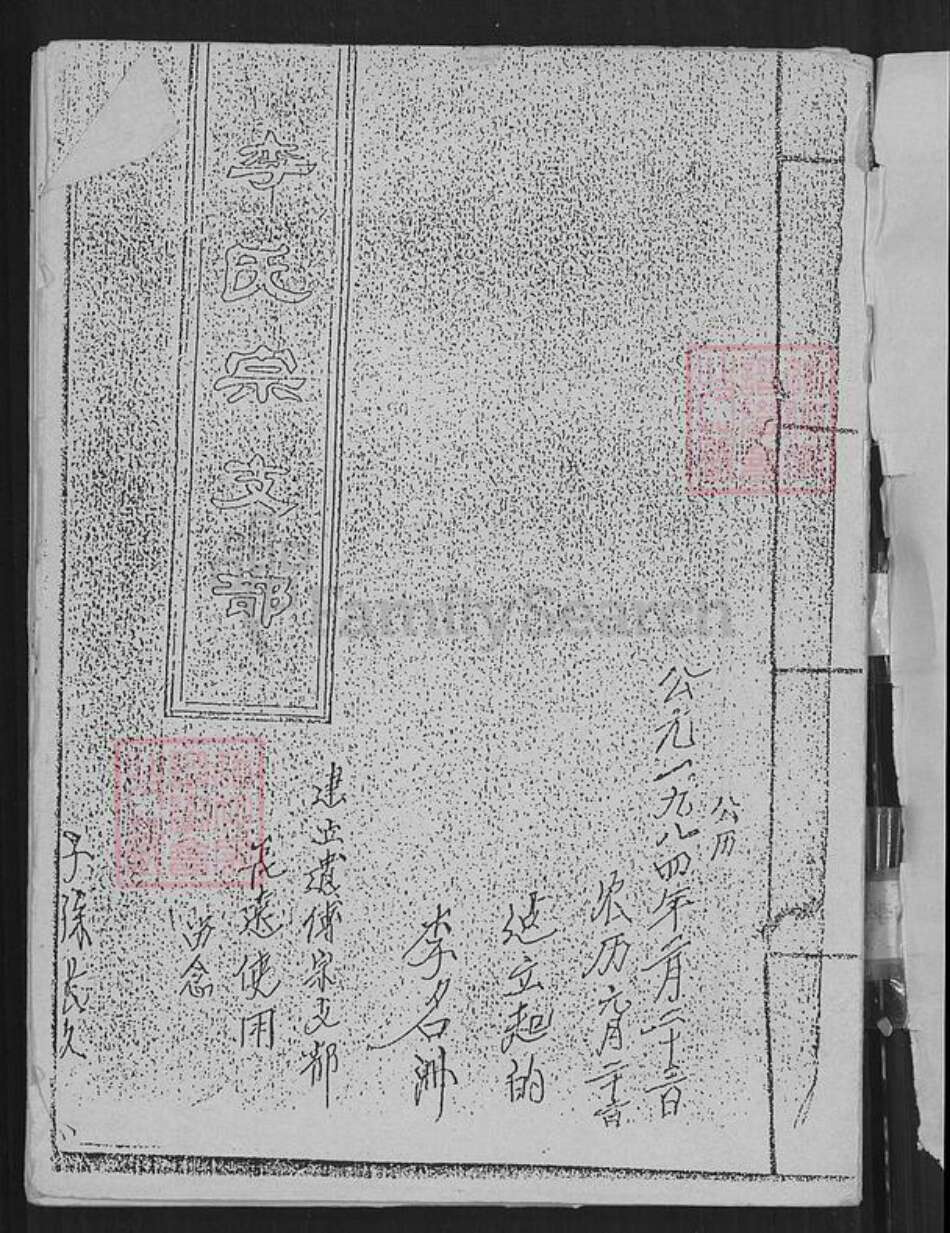 公历
公元一九八四年二月二十二日
农历元月二十一日
建立起的
李名洲
建立遗传宗支部
使用
留念
李氏宗支部
子孫长久
FamilySearch